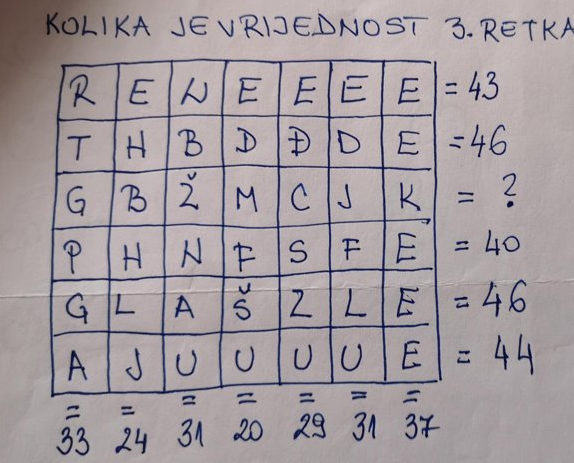 KOLIKA JE VRIJEDNOST 3. RETKA
R E N E E E E = 43
T H B D Đ D E = 46
G B Ž M C J K = ?
P H N F S F E = 40
G L A Š Z L E = 46
A J U U U U E = 44
= = = = = = =
33 24 31 20 29 31 37